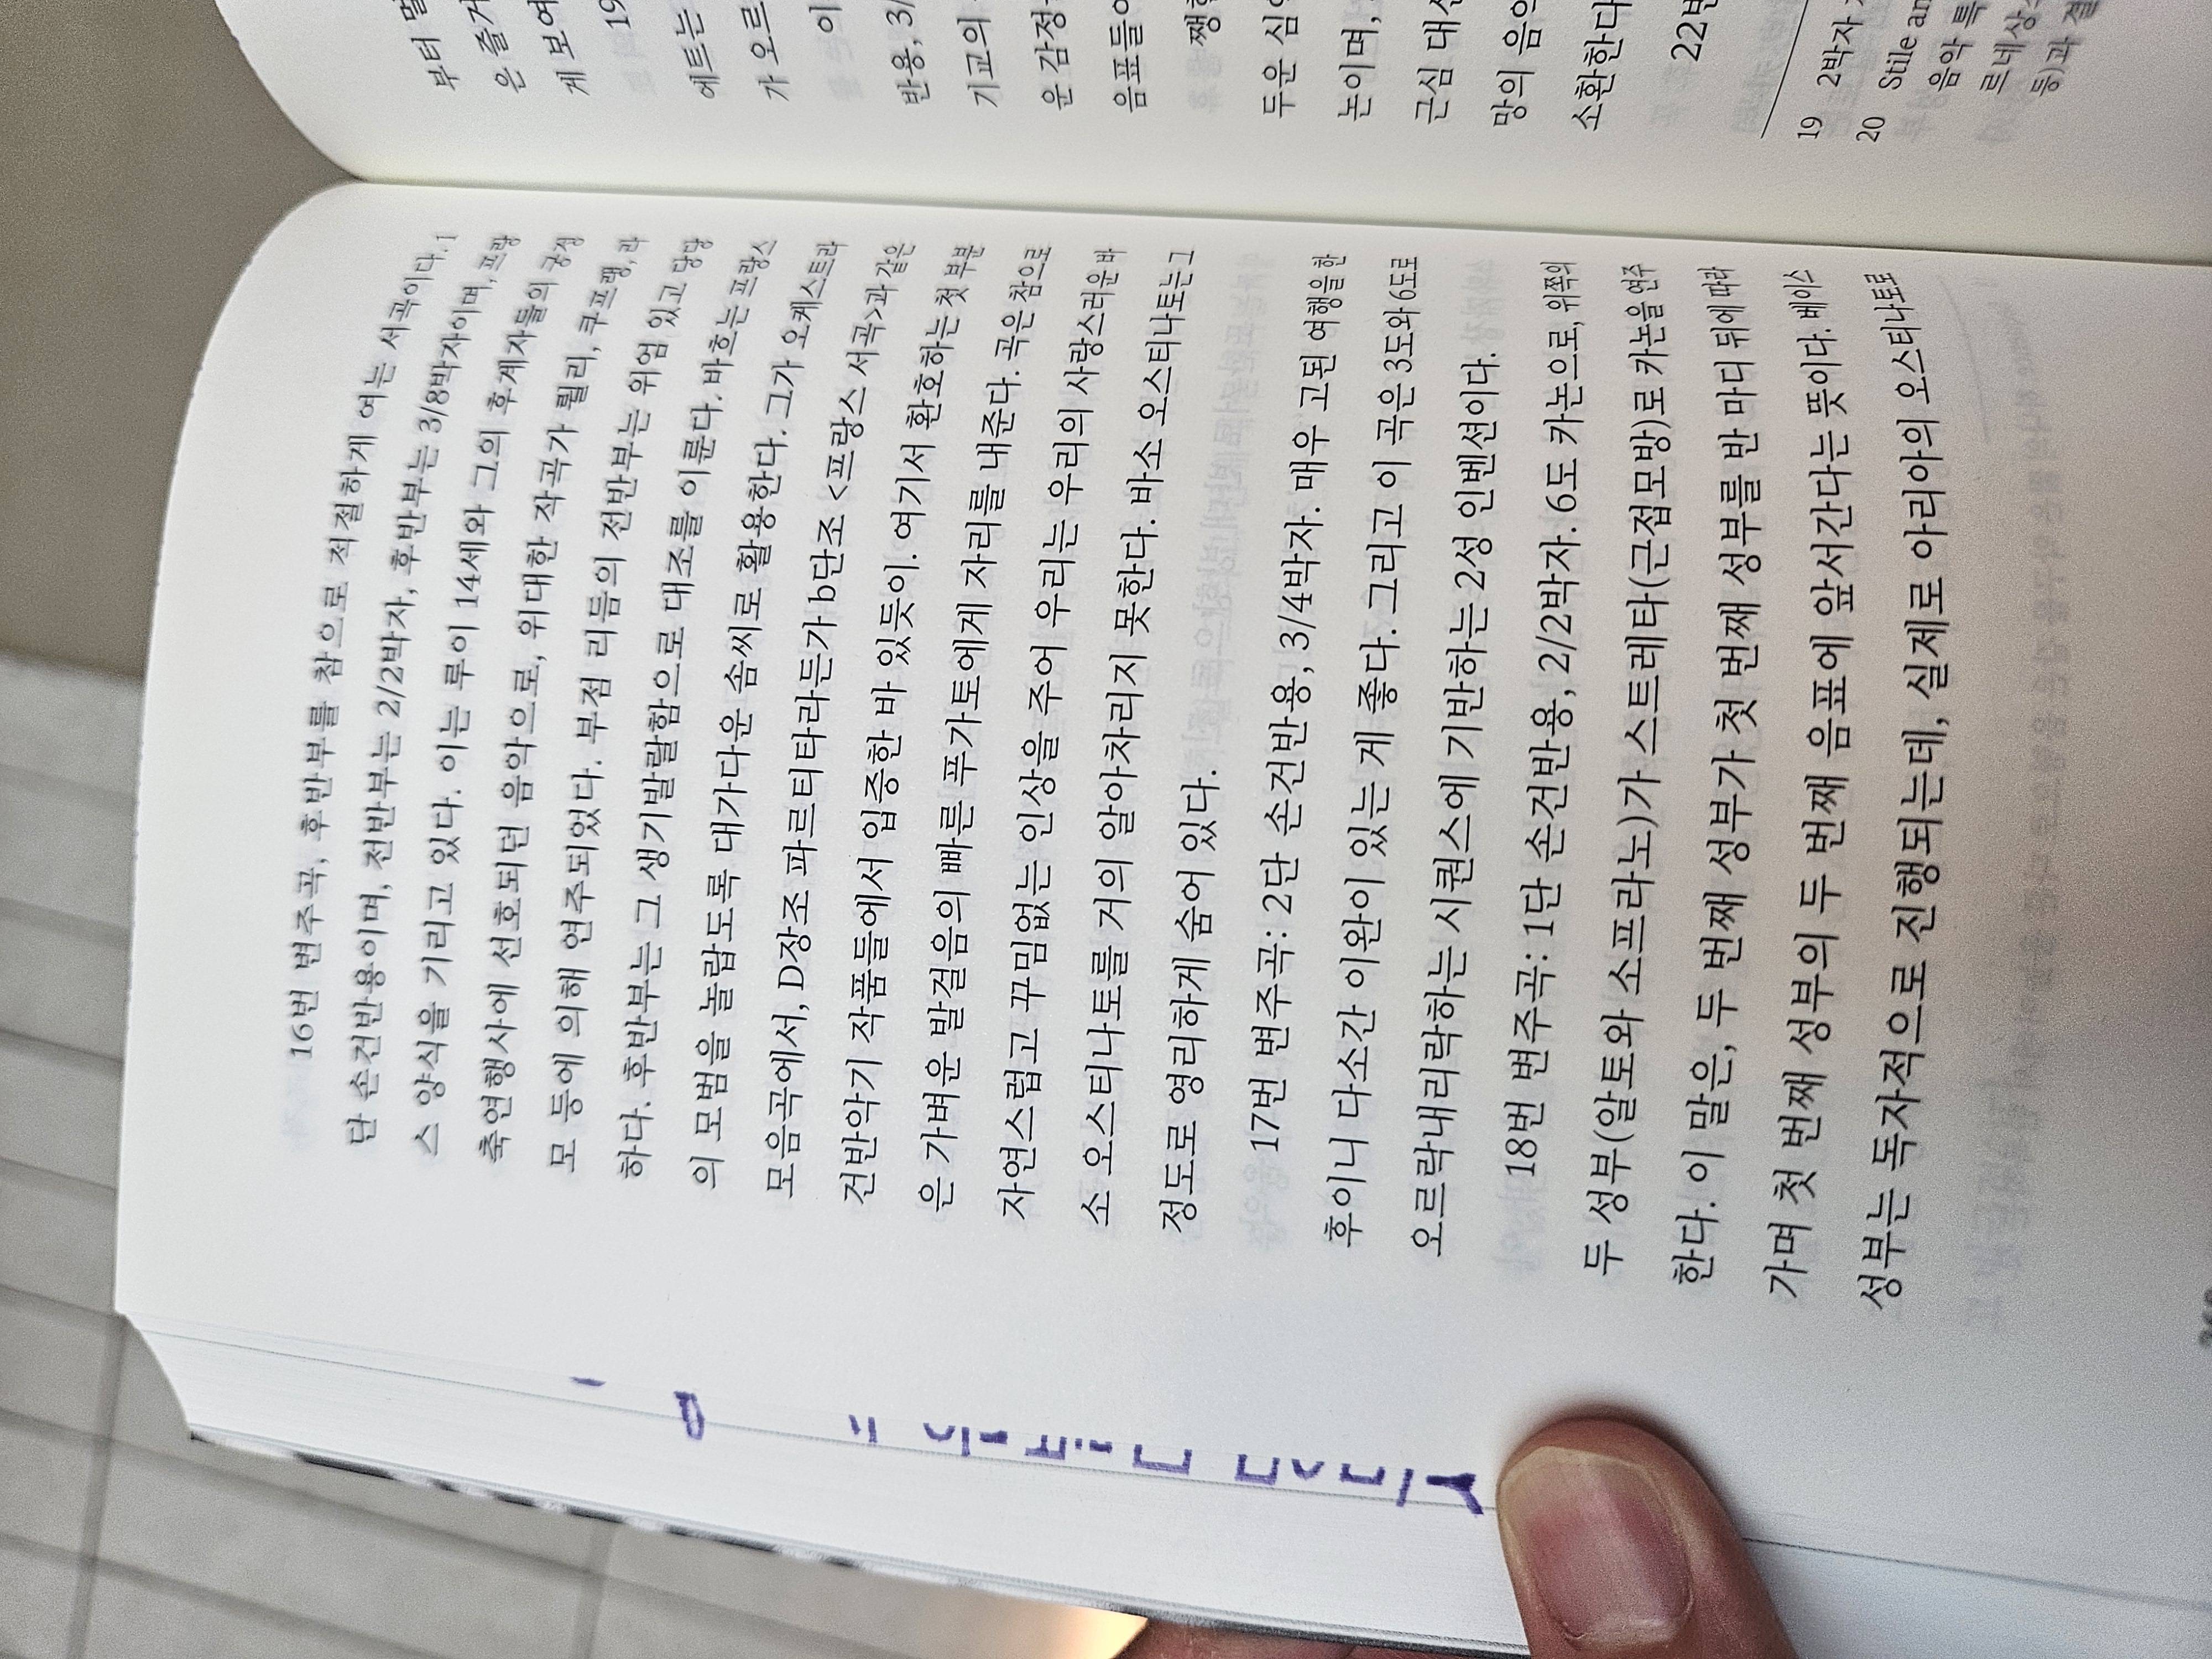 16번 변주곡, 후반부를 참으로 적절하게 여는 서곡이다. 1
단 손건반용이며, 전반부는 2/2박자, 후반부는 3/8박자이며, 프랑
스 양식을 기리고 있다. 이는 루이 14세와 그의 후계자들의 궁정
축연행사에 선호되던 음악으로, 위대한 작곡가 륄리, 쿠프랭, 라
모 등에 의해 연주되었다. 부점 리듬의 전반부는 위엄 있고 당당
하다. 후반부는 그 생기발랄함으로 대조를 이룬다. 바흐는 프랑스
의 모범을 놀랍도록 대가다운 솜씨로 활용한다. 그가 오케스트라
모음곡에서, D장조 파르티타라든가 b단조 <프랑스 서곡>과 같은
건반악기 작품들에서 입증한 바 있듯이. 여기서 환호하는 첫 부분
은 가벼운 발걸음의 빠른 푸가토에게 자리를 내준다. 곡은 참으로
자연스럽고 꾸밈없는 인상을 주어 우리는 우리의 사랑스러운 바
소 오스티나토를 거의 알아차리지 못한다. 바소 오스티나토는 그
정도로 영리하게 숨어 있다.
17번 변주곡: 2단 손건반용, 3/4박자. 매우 고된 여행을 한
후이니 다소간 이완이 있는 게 좋다. 그리고 이 곡은 3도와 6도로
오르락내리락하는 시퀀스에 기반하는 2성 인벤션이다.
18번 변주곡: 1단 손건반용, 2/2박자. 6도 카논으로, 위쪽의
두 성부(알토와 소프라노)가 스트레타(근접모방)로 카논을 연주
한다. 이 말은, 두 번째 성부가 첫 번째 성부를 반 마디 뒤에 따라
가며 첫 번째 성부의 두 번째 음표에 앞서간다는 뜻이다. 베이스
성부는 독자적으로 진행되는데, 실제로 아리아의 오스티나토로
부터 멀
은 즐거
게 보여
19
에트는
가 오르
반용, 3/
기교의
운 감정
음표들이
쨍한
두운 심
논이며,
근심 대신
망의 음악
소환한다
22번
19 2박자
20 Stile an
음악 특
르네상스
등)과 결